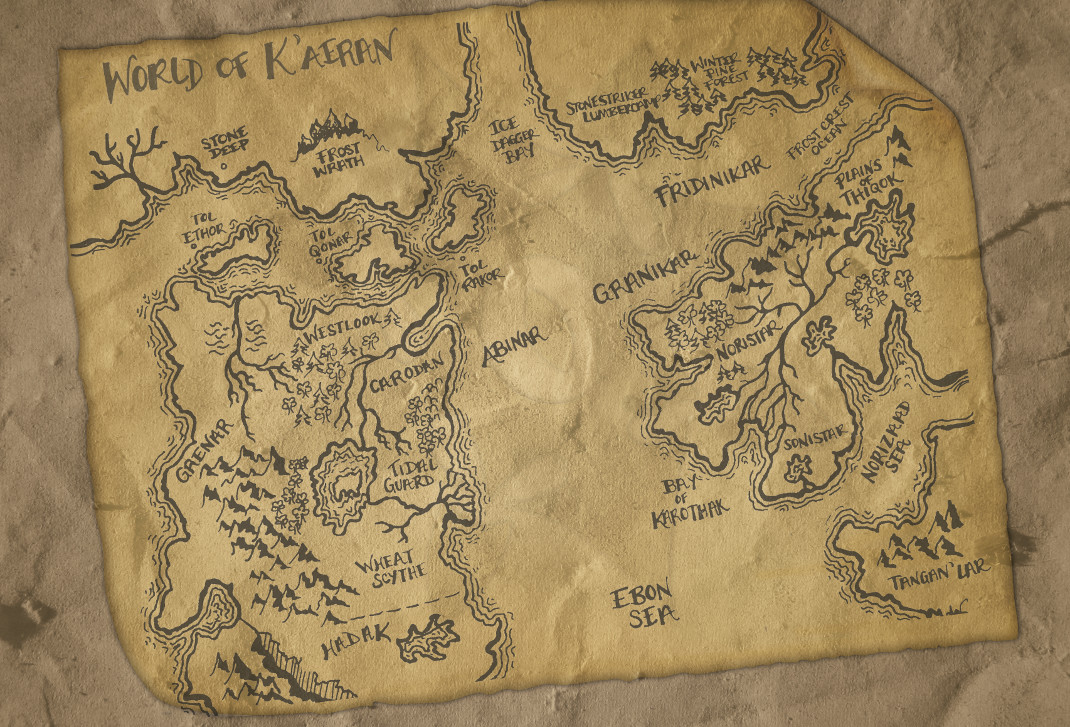 WORLD OF K'AERAN
STONE
DEEP
FROST
WRATH
ICE
DAGGER
BAY
STONESTRIKER
LUMBERCAMP
WINTER
PINE
FOREST
FROST CREST
OCEAN
FRIDINIKAR
PLAINS
OF
THIGOK
TOL
ETHOR
TOL
QONOR
TOL
RAKOR
GRANIKAR
WESTLOOK
ABINAR
NORISTAR
CARODAN
GAENAR
TIDAL
GUARD
SONISTAR
NORIZKARD
SEA
BAY
OF
KAROTHAK
WHEAT
SCYTHE
TANGAN'LAR
EBON
SEA
HADAK